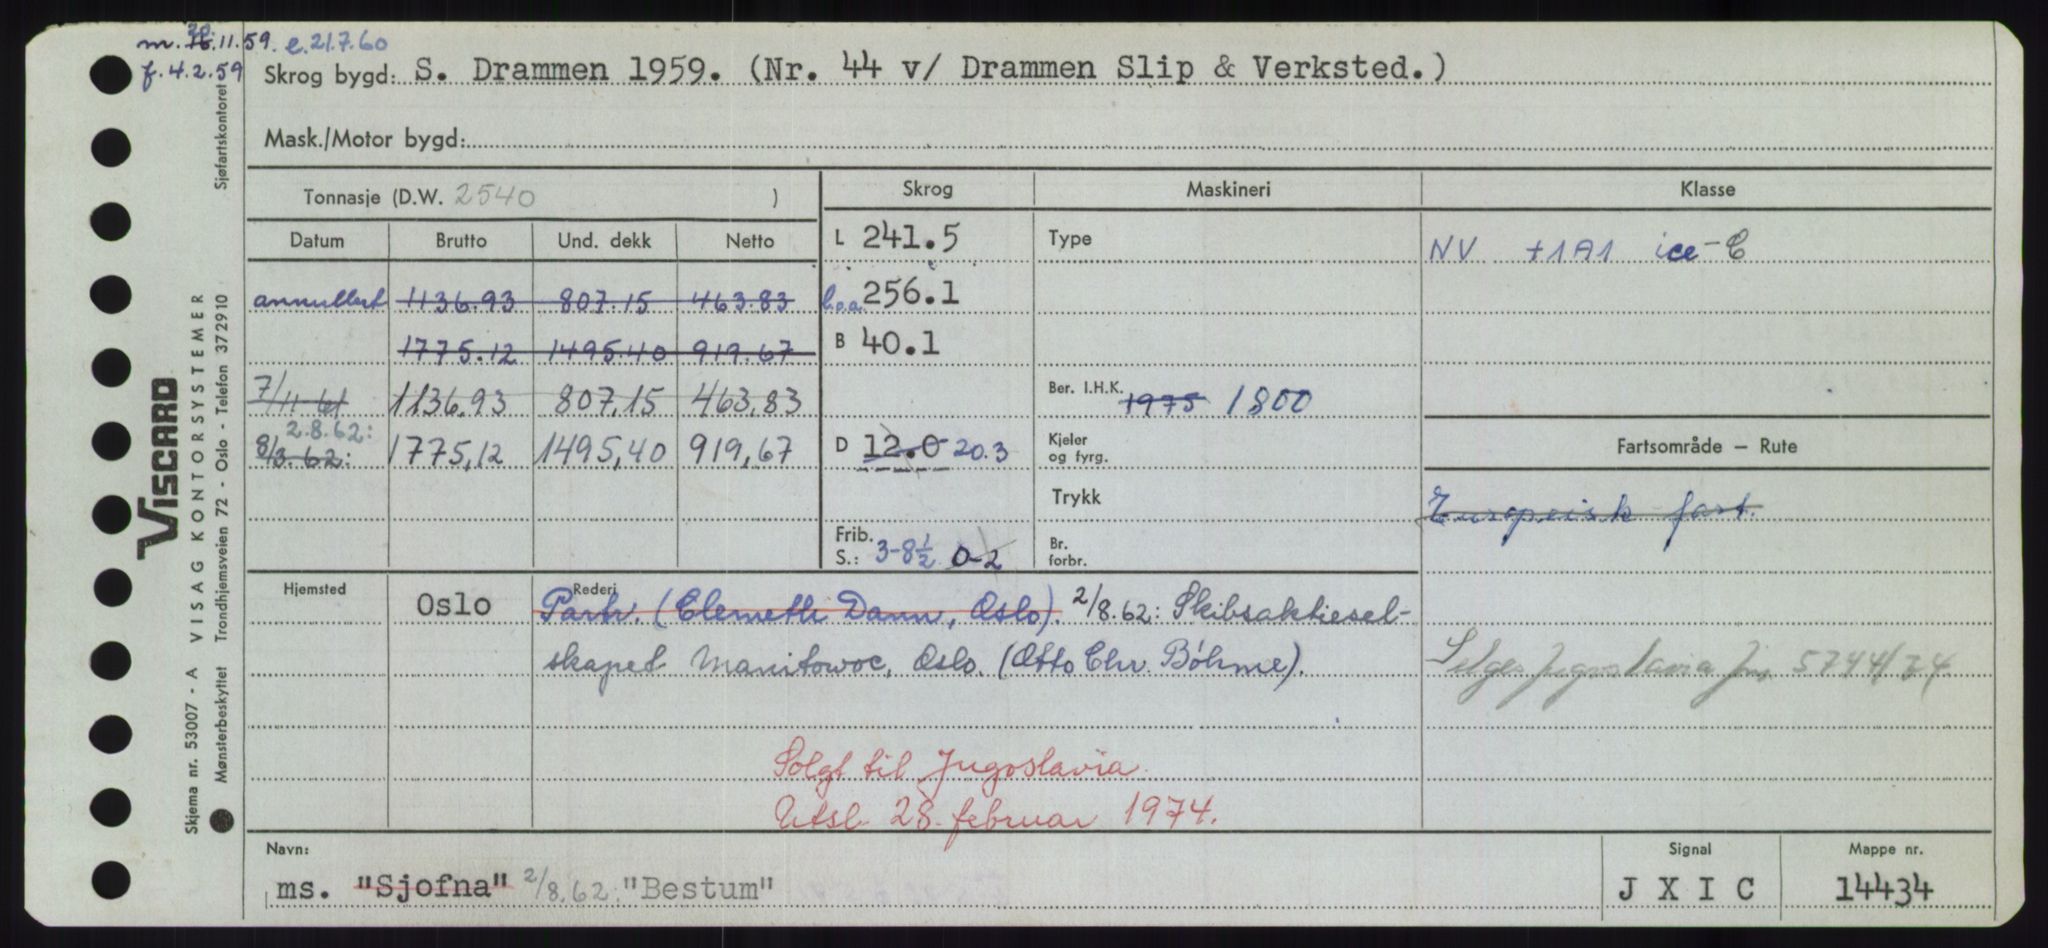 m. 20.11.59. e. 21.7.60
f. 4.2.59
Skrog bygd: S. Drammen 1959. (Nr. 44 v/ Drammen Slip & Verksted.)
Mask./Motor bygd:
Tonnasje (D.W. 2540 )
Skrog
Maskineri
Klasse
Datum Brutto Und. dekk Netto
L 241.5
Type
NV +1A1 ice-C
annullert 1136.93 807.15 463.83
l.o.a. 256.1
1775.12 1495.40 919.67
B 40.1
7/11 61 1136.93 807.15 463,83
Ber. I.H.K. 1975 1800
2.8.62:
8/3.62: 1775,12 1495,40 919,67
D 12.0 20.3
Kjeler
og fyrg.
Fartsområde – Rute
Trykk
Europeisk fart.
Frib.
S.: 3-8½ 0-2
Br.
forbr.
Hjemsted Oslo
Rederi
Partr. (Clemeth Dann, Oslo). 2/8.62: Skibsaktiesel-
skapet Manitowoc, Oslo. (Otto Chr. Böhme).
Selges Jugoslavia 5744/74
Solgt til Jugoslavia.
Utsl. 28. februar 1974.
Navn:
ms. "Sjofna" 2/8.62: "Bestum"
Signal
J X I C
Mappe nr.
14434
VISCARD
Skjema nr. 53007 - A VISAG KONTORSYSTEMER
Mønsterbeskyttet Trondhjemsveien 72 - Oslo - Telefon 372910 Sjøfartskontoret